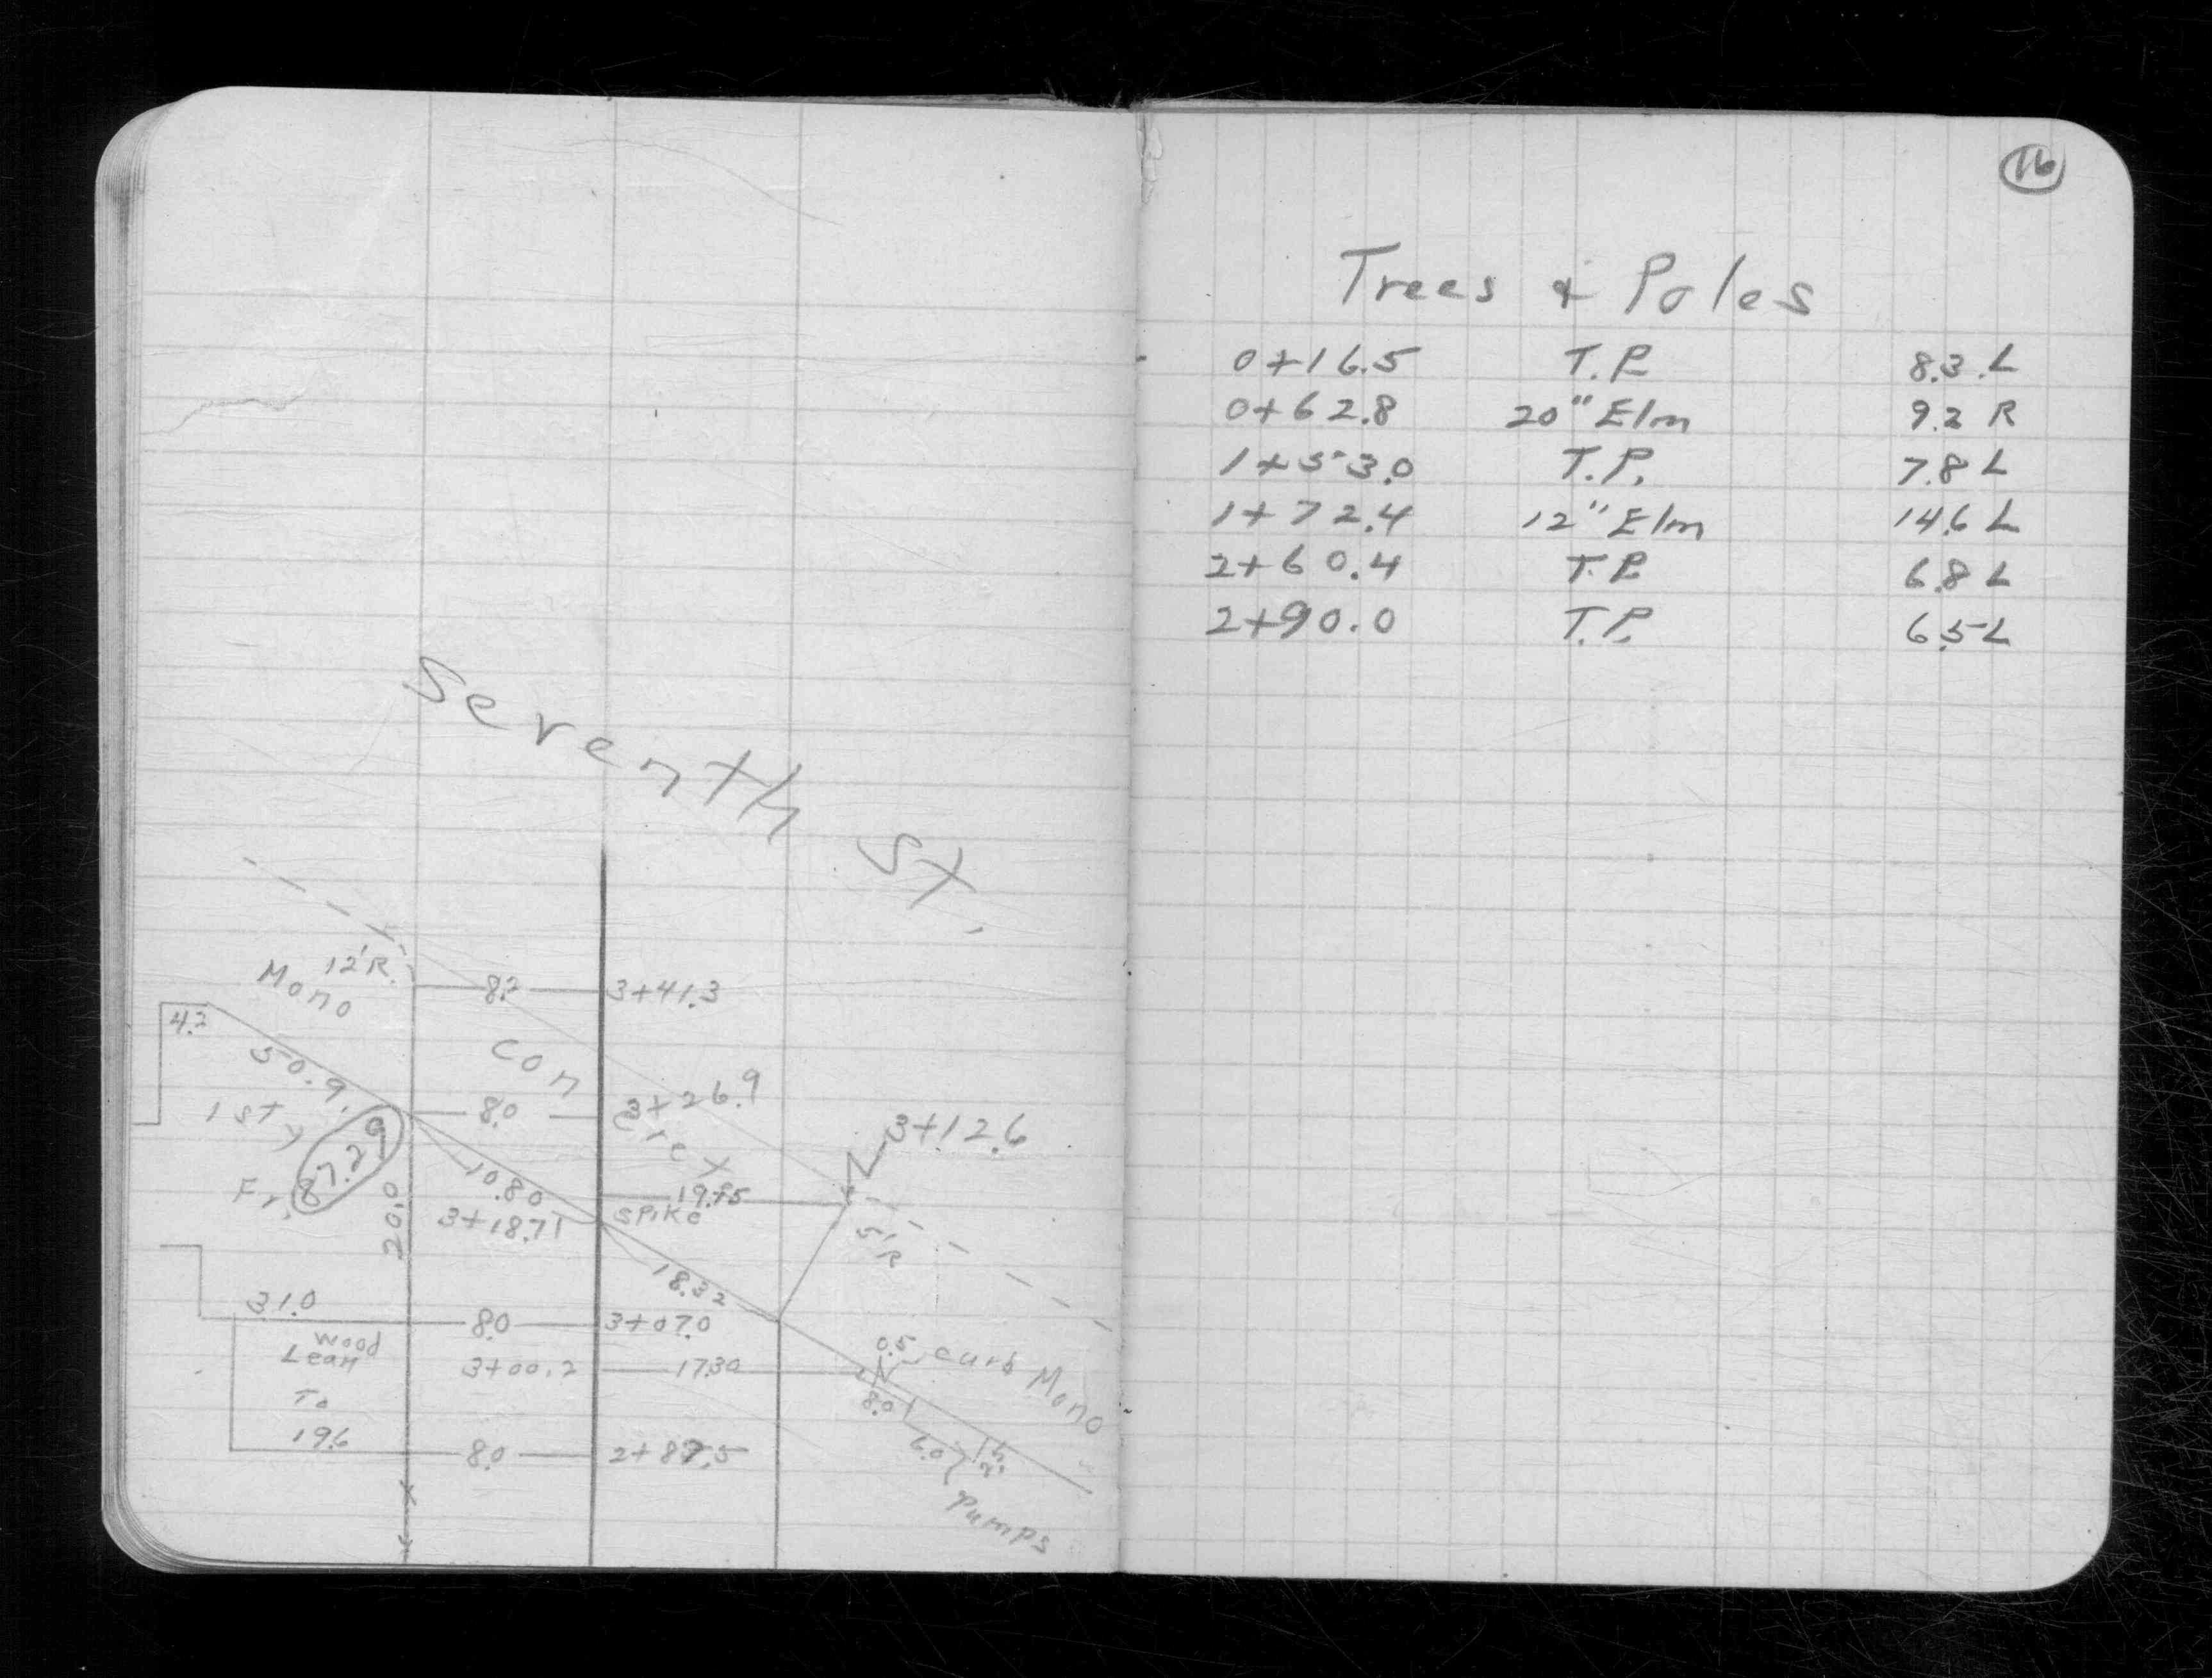 Seventh St.
12'R.
Mono
8.2 3+41.3
4.2
50.9
Con
8.0 3+26.9
cret
1 Sty
Fr.
87.29
3+12.6
10.80
19.75
20.0
3+18.71 Spike
5'R
18.32
31.0
8.0 3+07.0
Wood
Lean
To
19.6
3+00.2 17.30
0.5 curb Mono
8.0
6.0
Pumps
8.0 2+87.5
16
Trees & Poles
0+16.5 T.P. 8.3 L
0+62.8 20" Elm 9.2 R
1+53.0 T.P. 7.8 L
1+72.4 12" Elm 14.6 L
2+60.4 T.P. 6.8 L
2+90.0 T.P. 6.5 L